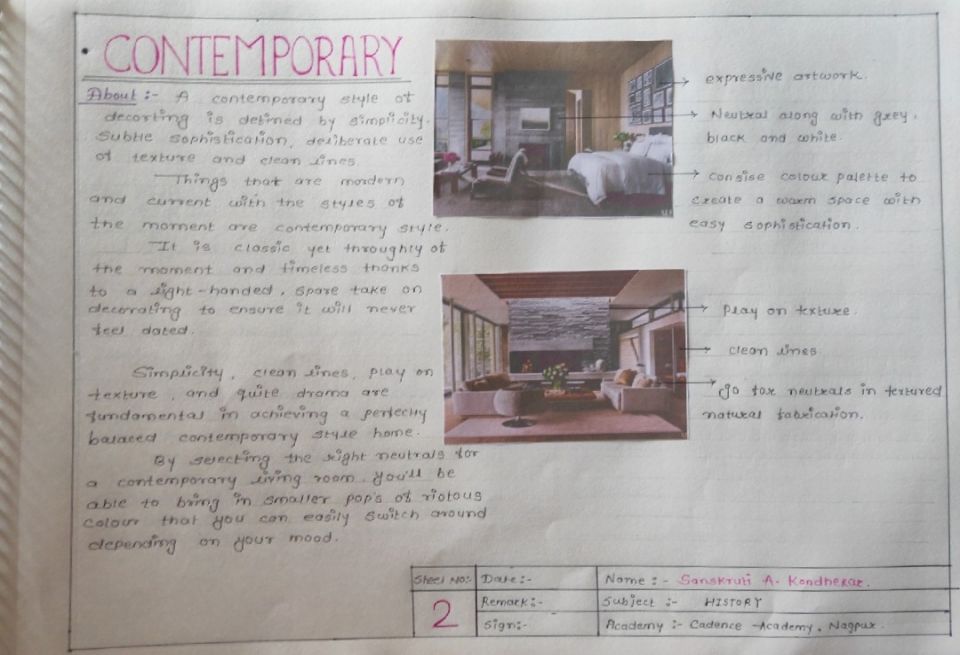 CONTEMPORARY
About :- A contemporary style of
decorting is defined by simplicity.
Subtle sophistication, deliberate use
of texture and clean lines.
Things that are mordern
and current with the styles of
the moment are contemporary style.
It is classic yet throughly of
the moment and timeless thanks
to a light-handed, spare take on
decorating to ensure it will never
feel dated.
Simplicity, clean lines, play on
texture, and quite drama are
fundamental in achieving a perfectly
balaced contemporary style home.
By selecting the right neutrals for
a contemporary living room, you'll be
able to bring in smaller pop's of riotous
colour that you can easily switch around
depending on your mood.
expressive artwork.
Neutral along with grey,
black and white.
consise colour palette to
create a warm space with
easy sophistication.
Play on texture.
clean lines
go for neutrals in textured
natural fabrication.
Sheet No:- Date:- Name :- Sanskruti A. Kondhekar.
2 Remark:- Subject :- HISTORY
Sign:- Academy :- Cadence Academy, Nagpur.